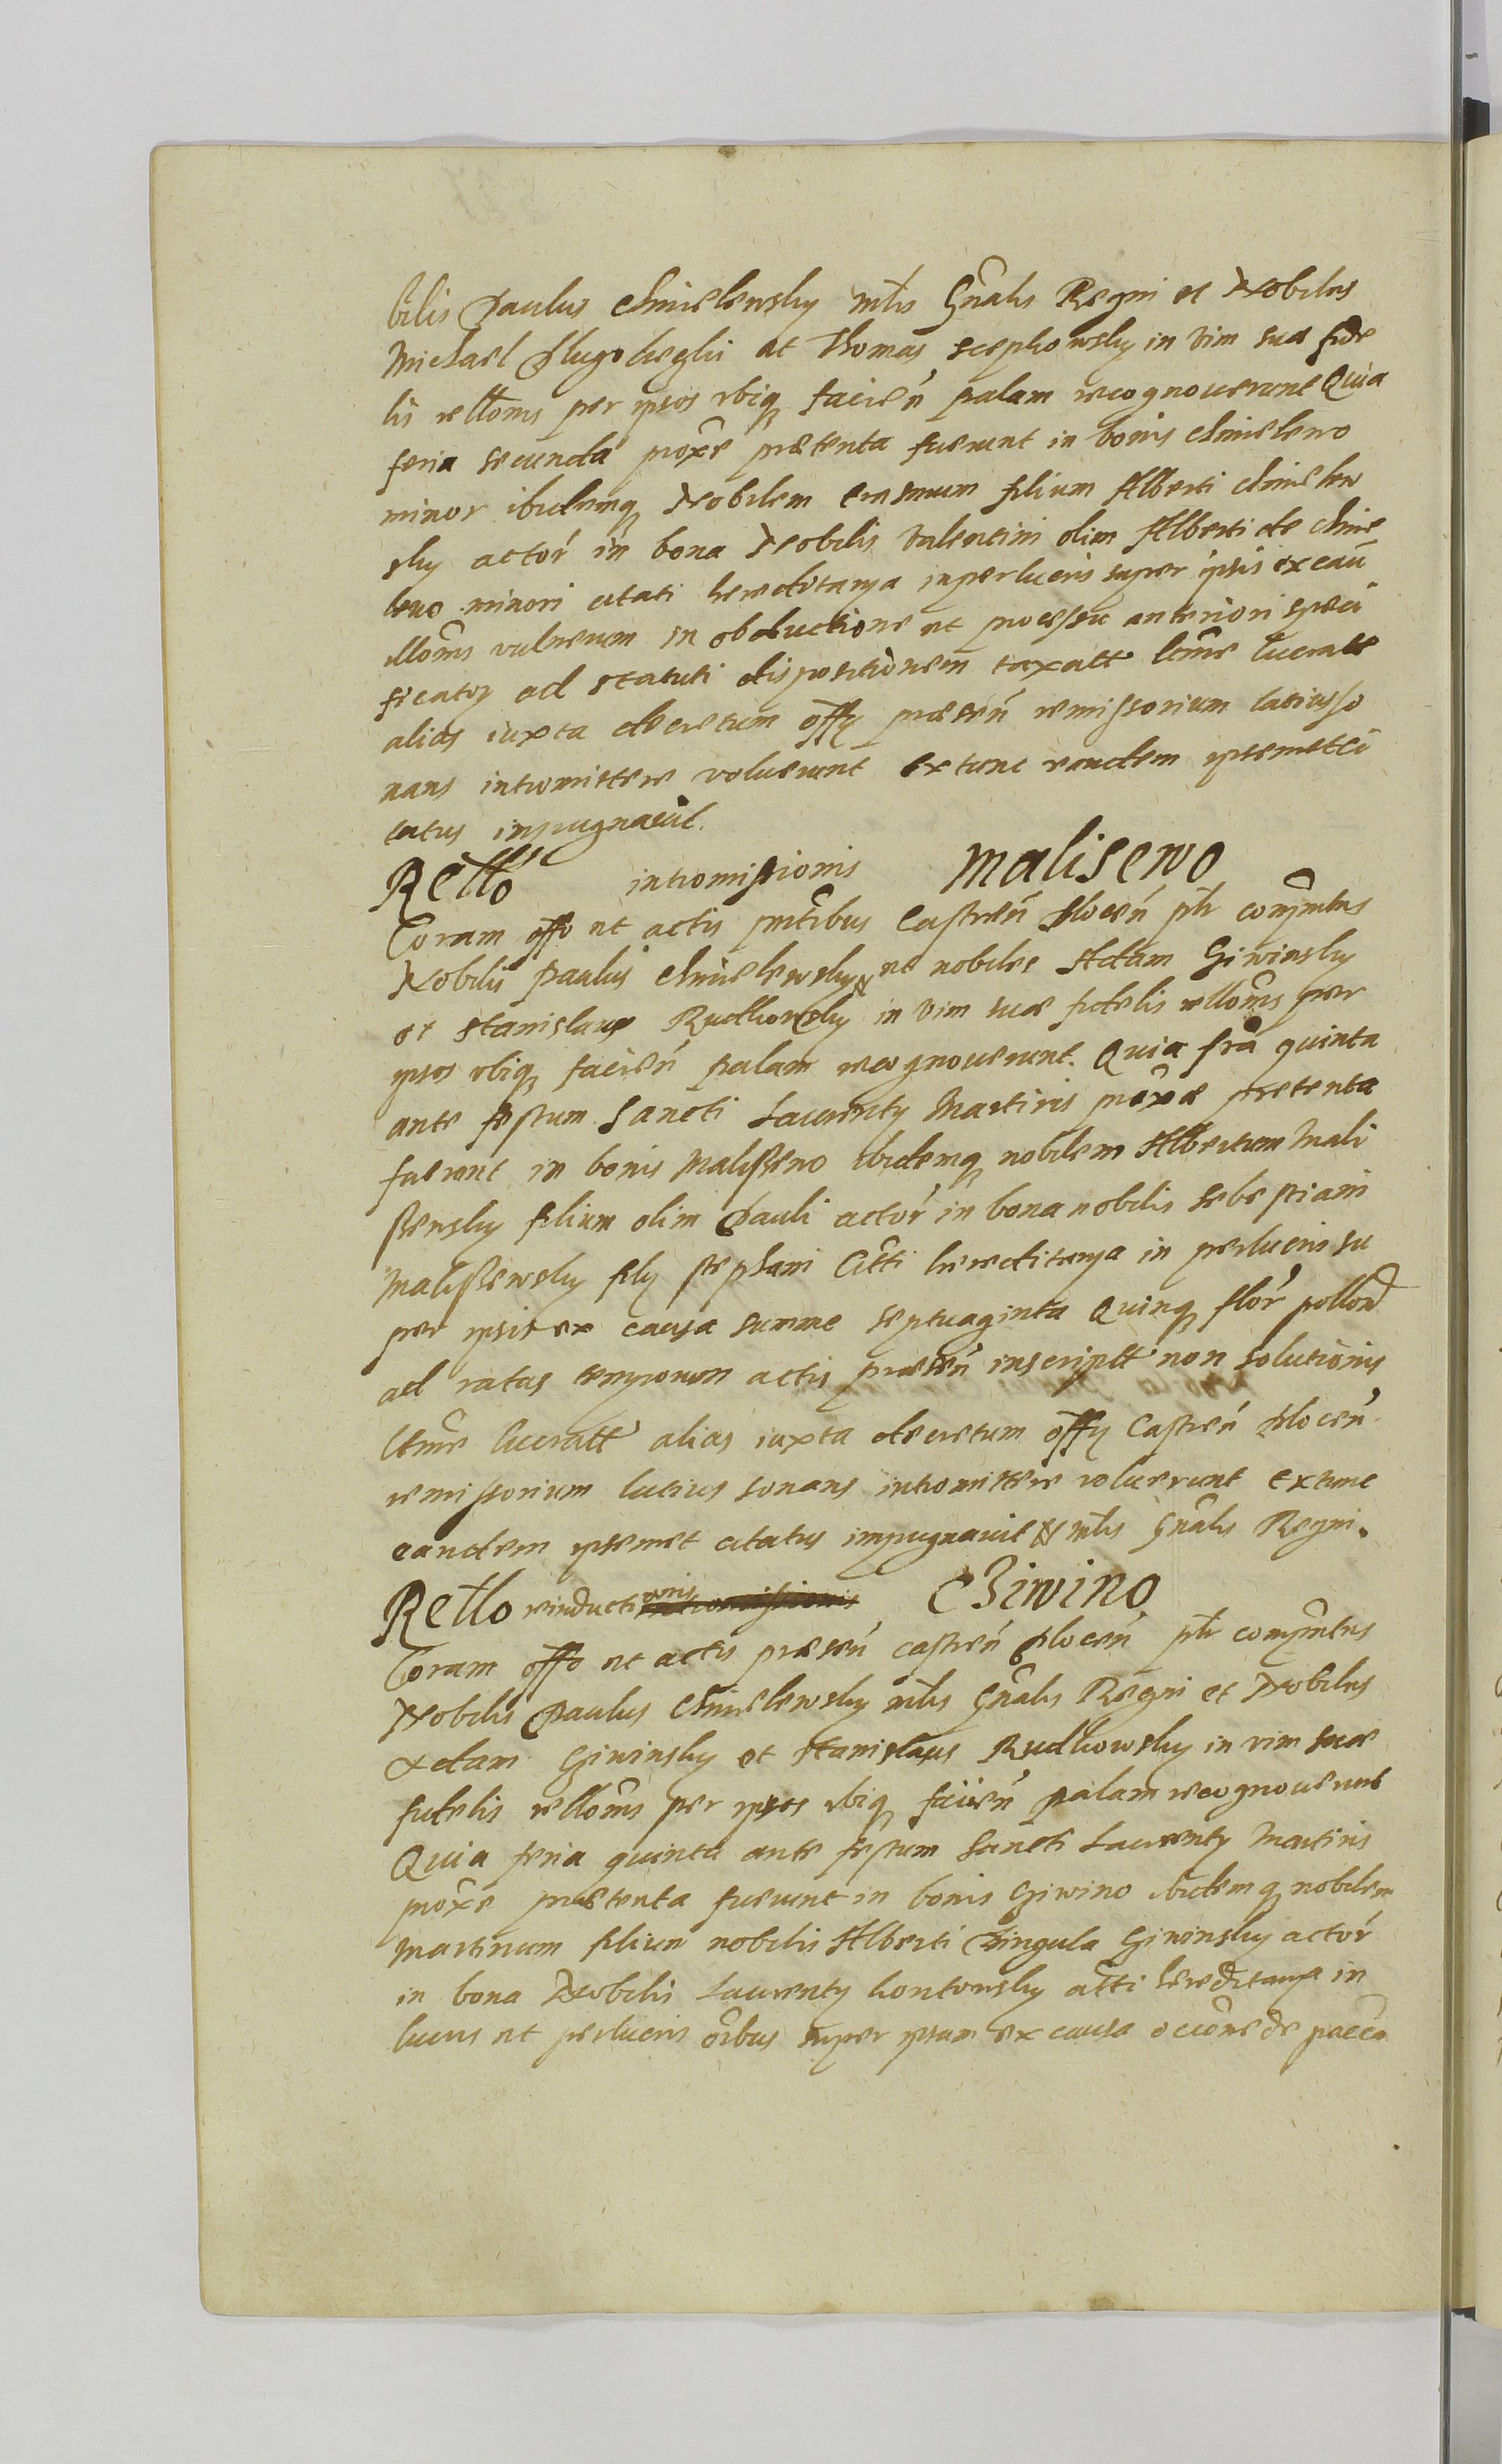 bilis Paulus Chmielewsky mlis Gnalis Regni et Nobiles
Michael Dlugoleghi et Thomas Scepkowsky in vim sua fide
lis rellonis per ipsos ibiq facien palam recognoverunt Quia
feria secunda proxe pretenta fuerunt in bonis Chmielewo
minor ibidemq Nobilem Erasmum filium Alberti Chmielew
sky actor in bona Nobilis Valentini olim Alberti de Chmie
lewo minori citati hereditarya in perlucris super ipsis ex cau
llonis vulnerum in obductione et processu anteriori speci
ficatoɡ ad statuti dispositionem taxatt lttme lucratt
alias iuxta decretum offy presen remissorium latius so
nans intromittere voluerunt ex tunc eandem ipsemet ci
tatus inpugnavit.
Rello intromissionis Malisewo
Coram offo et actis pntibus Castren Plocen plr compntes
Nobilis Paulus Chmielewsky et nobiles Adam Giwinsky
et Stanislaus Rudkowsky in vim suæ fidelis rellonis per
ipsos ibiq facien palam recognoverunt. Quia fra quinta
ante festum Sancti Laurenty Martiris proxe pretenta
fuerunt in bonis Malissewo ibidemq nobilem Albertum Mali
ssewsky filium olim Pauli actor in bona nobilis Sebestiani
Malissewsky fily Stephani Citti hereditarya in perlucris su
per ipsis ex causa summe septuaginta Quinq flor pollon
ad ratas temporum actis presen inscriptt non solutionis
lttme lucratt alias iuxta decretum offy Castren Plocen
remissorium lacius sonans intromittere voluerunt ex tunc
eandem ipsemet citatus impugnavit mlis Gnalis Regni.
Rello reinductionis intromissionis CZiwino
Coram offo et actis presen castren Plocen plr compntes
Nobilis Paulus Chmielewsky mlis Gnalis Regni et Nobiles
Adam Giwinsky et Stanislaus Rudkowsky in vim suæ
fidelis rellonis per ipsos ibiq facien palam recognoverunt
Quia feria quinta ante festum Sancti Laurenty Martiris
proxe pretenta fuerunt in bonis Giwino ibidemq nobilem
Martinum filium nobilis Alberti Gingula Giwinsky actor
in bona Nobilis Laurenty Kontowsky citti hereditarya in
lucris et perlucris oibus super ipsum ex causa occione de pacca